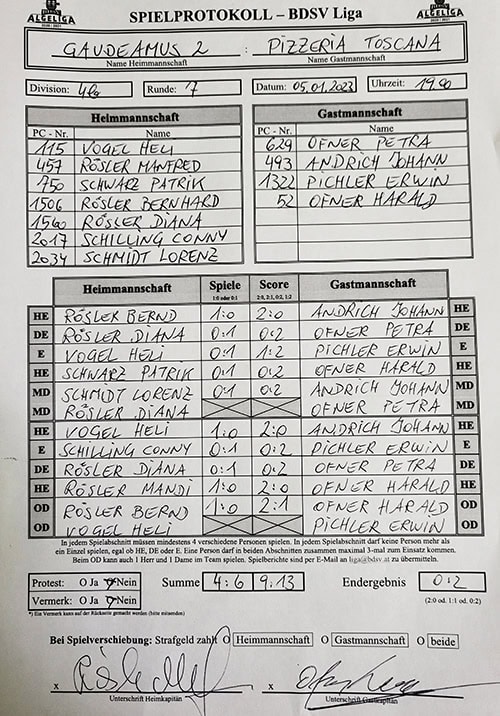 ALGELIGA SPIELPROTOKOLL – BDSV Liga ALGELIGA
GAUDEAMUS 2 : PIZZERIA TOSCANA
Name Heimmannschaft Name Gastmannschaft
Division: Runde: 7 Datum: 05.01.2023 Uhrzeit: 19.00
Heimmannschaft Gastmannschaft
PC - Nr. Name PC - Nr. Name
115 VOGEL HELI 629 OFNER PETRA
457 RÖSLER MANFRED 493 ANDRICH JOHANN
750 SCHWARZ PATRIK 1322 PICHLER ERWIN
1506 RÖSLER BERNHARD 52 OFNER HARALD
1560 RÖSLER DIANA
2017 SCHILLING CONNY
2034 SCHMIDT LORENZ
Heimmannschaft Spiele Score Gastmannschaft
1:0 oder 0:1 2:0, 2:1, 0:2, 1:2
HE RÖSLER BERND 1:0 2:0 ANDRICH JOHANN HE
DE RÖSLER DIANA 0:1 0:2 OFNER PETRA DE
E VOGEL HELI 0:1 1:2 PICHLER ERWIN E
HE SCHWARZ PATRIK 0:1 0:2 OFNER HARALD HE
MD SCHMIDT LORENZ 0:1 0:2 ANDRICH JOHANN MD
MD RÖSLER DIANA OFNER PETRA MD
HE VOGEL HELI 1:0 2:0 ANDRICH JOHANN HE
E SCHILLING CONNY 0:1 0:2 PICHLER ERWIN E
DE RÖSLER DIANA 0:1 0:2 OFNER PETRA DE
HE RÖSLER MANDI 1:0 2:0 OFNER HARALD HE
OD RÖSLER BERND 1:0 2:1 OFNER HARALD OD
OD VOGEL HELI PICHLER ERWIN OD
In jedem Spielabschnitt müssen mindestens 4 verschiedene Personen spielen. In jedem Spielabschnitt darf keine Person mehr als
ein Einzel spielen, egal ob HE, DE oder E. Eine Person darf in beiden Abschnitten zusammen maximal 3-mal zum Einsatz kommen.
Beim OD kann auch 1 Herr und 1 Dame im Team spielen. Spielberichte sind per E-Mail an liga@bdsv.at zu übermitteln.
Protest: O Ja Nein Summe 4:6 9:13 Endergebnis 0:2
Vermerk: O Ja Nein (2:0 od. 1:1 od. 0:2)
*) Ein Vermerk kann auf der Rückseite gemacht werden (bitte ankreuzen)
Bei Spielverschiebung: Strafgeld zahlt O Heimmannschaft O Gastmannschaft O beide
x x
Unterschrift Heimkapitän Unterschrift Gastkapitän